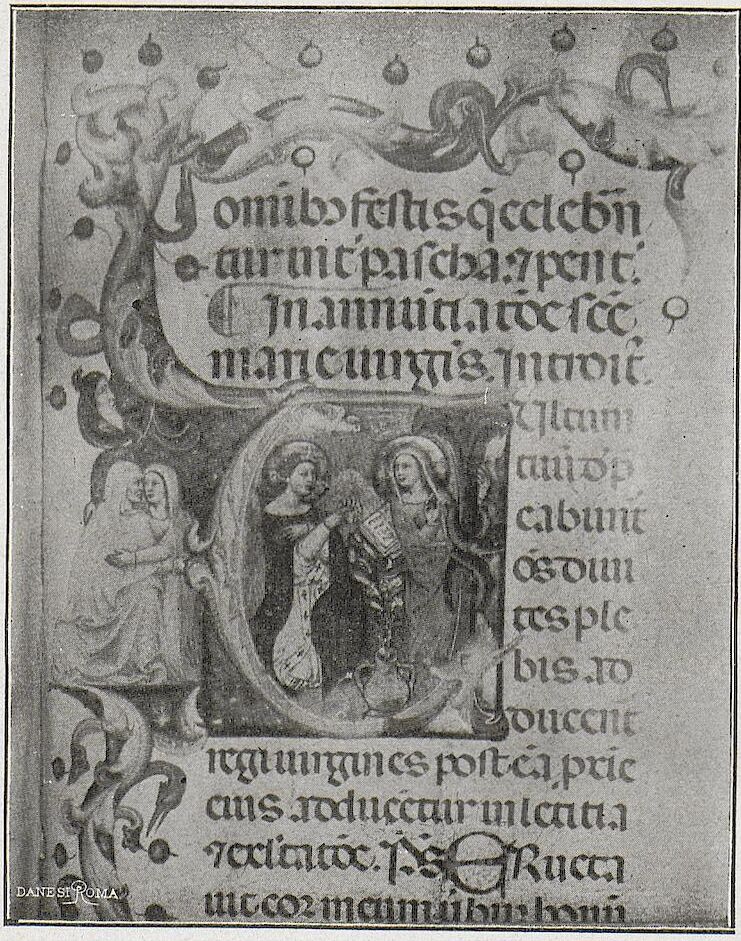 omībꝫ festis q̄ celebrn̄
tur int̄ pascha. ⁊ pent̄.
In annūtiatōe scē
marie uirgīs. Introit̄.
Ultum
tuū dp̄
cabunt
oēs diui
tes ple
bis ad
ducent
regi uirgines post eā. pxīe
eius adducētur in letitia
⁊ exl̄tatōe. Ps̄ Eructa
uit cor meum bonū
DANESI ROMA